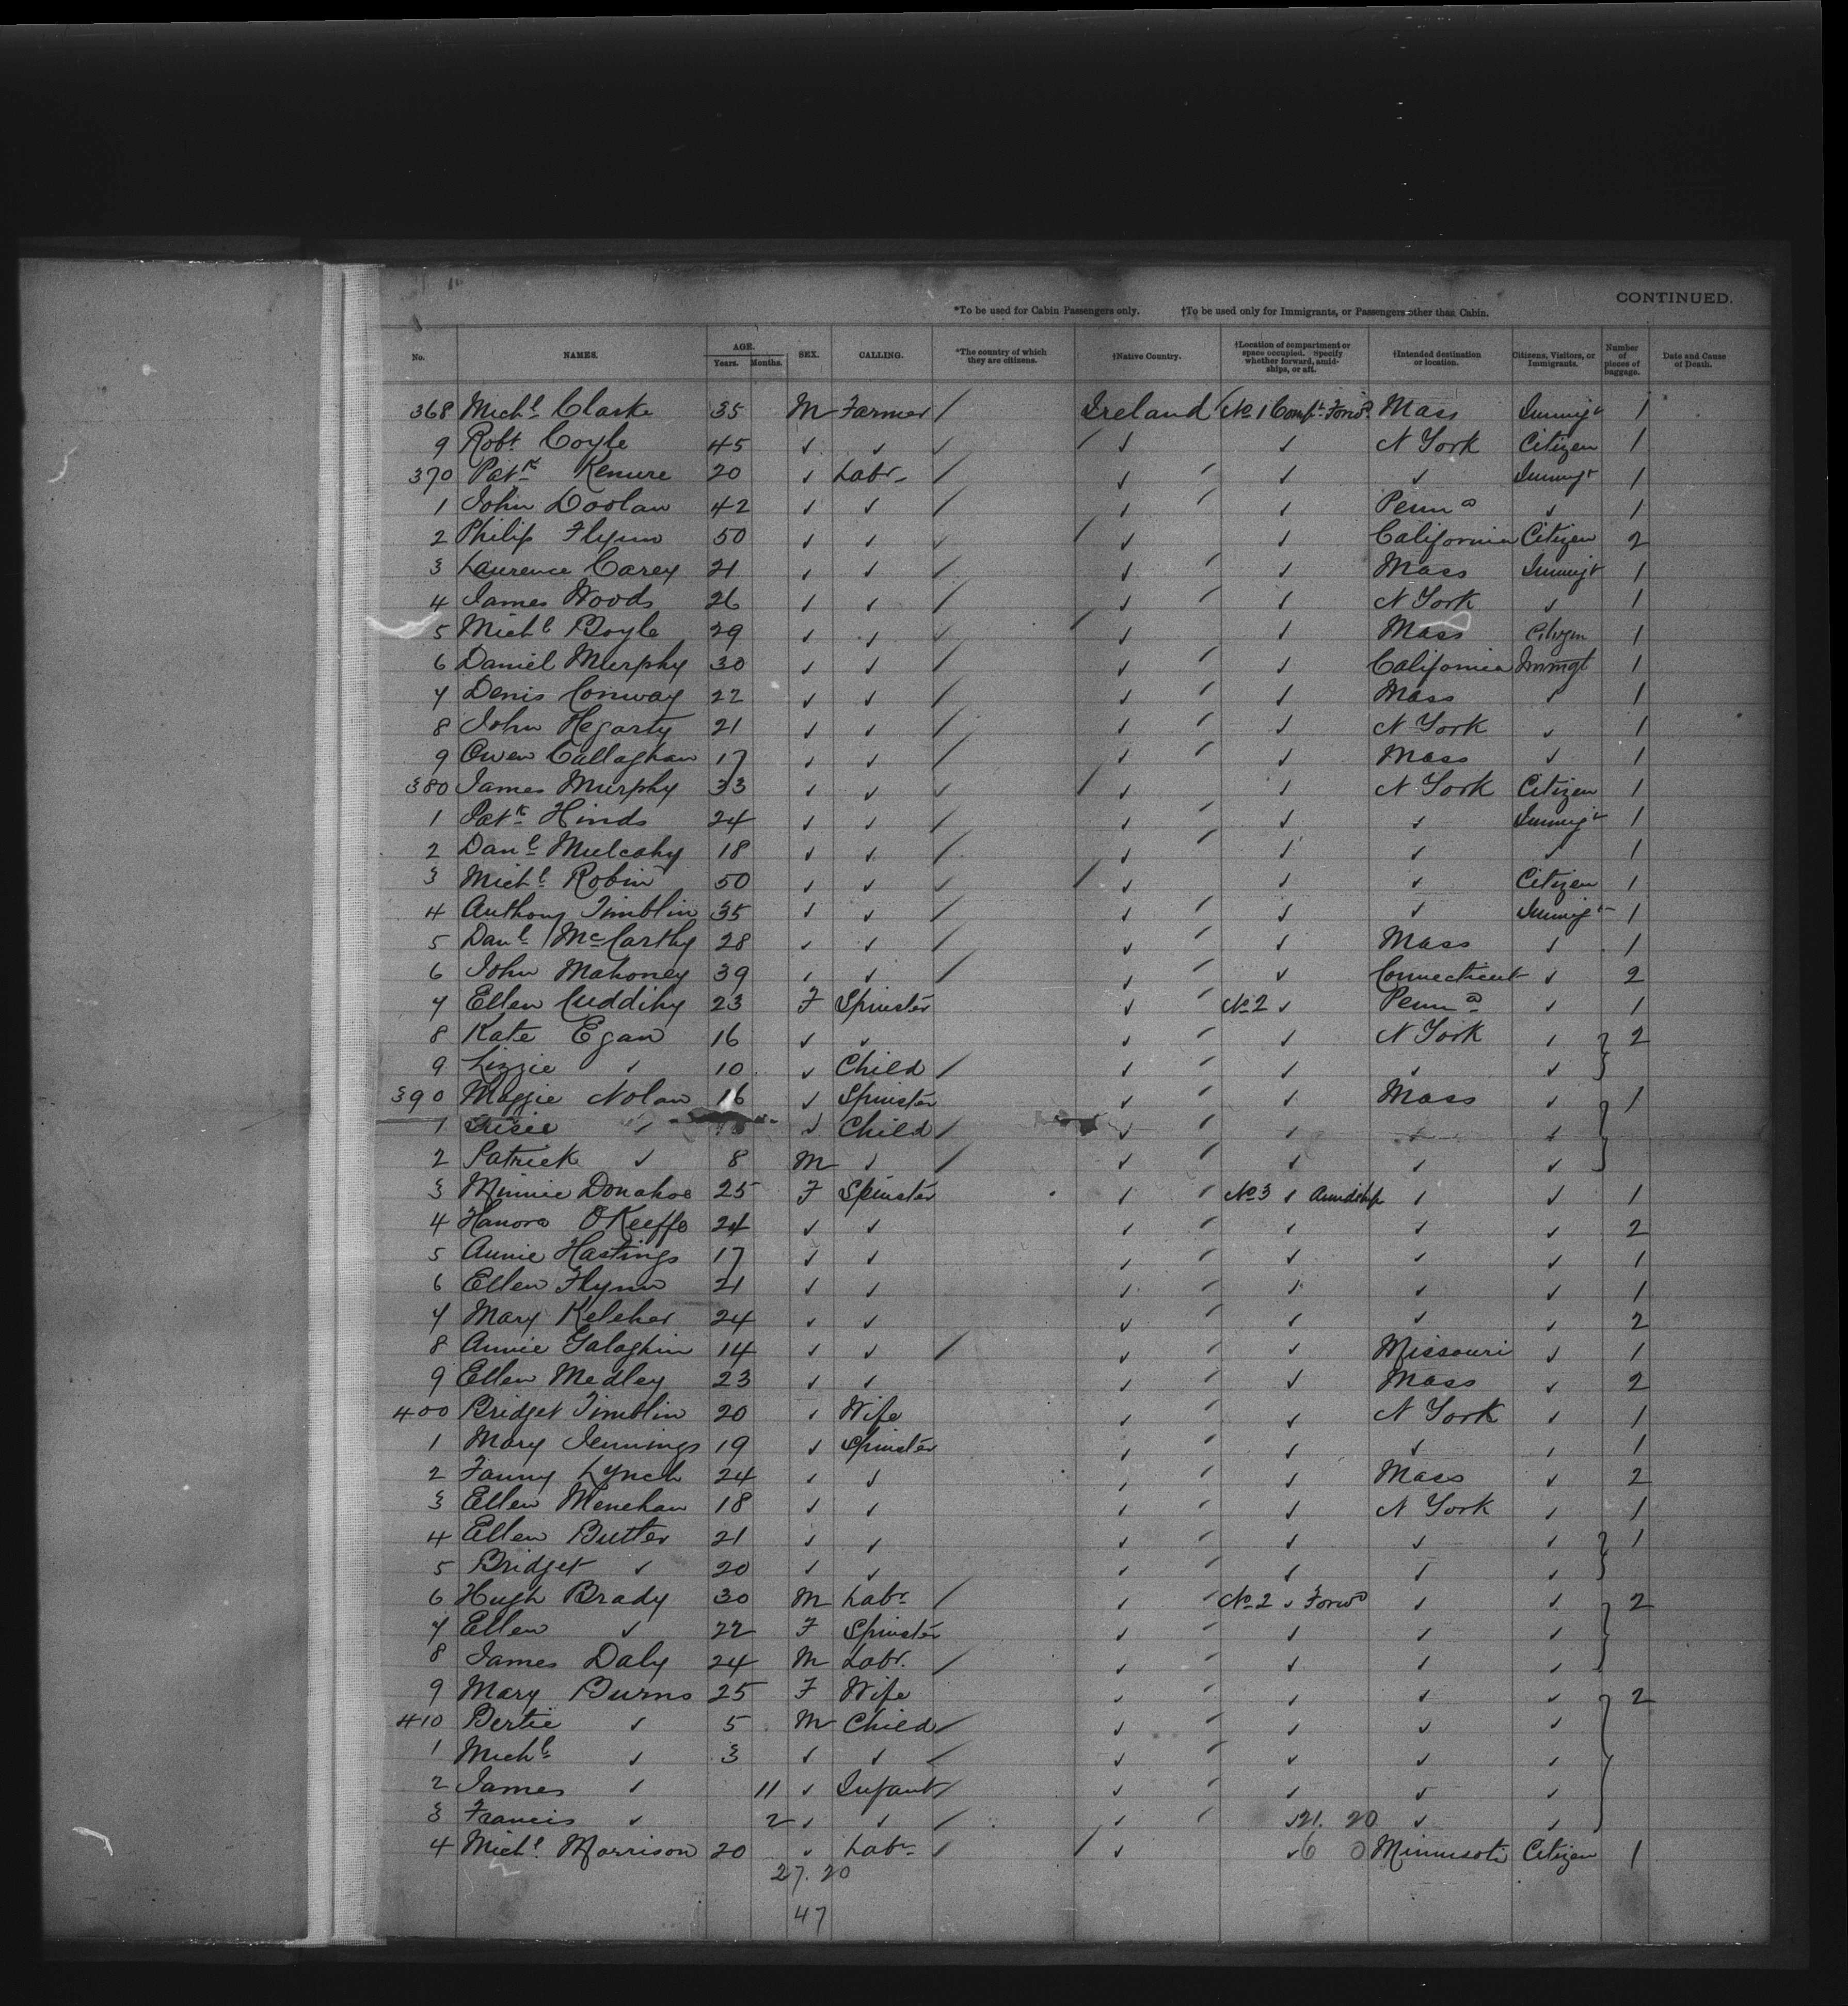 CONTINUED.
*To be used for Cabin Passengers only. †To be used only for Immigrants, or Passengers other than Cabin.
No. NAMES. AGE. Years. Months. SEX. CALLING. *The country of which they are citizens. †Native Country. †Location of compartment or space occupied. Specify whether forward, amidships, or aft. †Intended destination or location. Citizens, Visitors, or Immigrants. Number of pieces of baggage. Date and Cause of Death.
368 Michl Clarke 35 M Farmer / Ireland No 1 Compt Forwd Mass Immigt 1
9 Robt Coyle 45 ✓ ✓ ✓ ✓ N York Citizen 1
370 Patk Kenure 20 ✓ Labr / ✓ ✓ ✓ Immigt 1
1 John Doolan 42 ✓ ✓ / ✓ ✓ Penna ✓ 1
2 Philip Flynn 50 ✓ ✓ ✓ ✓ ✓ California Citizen 2
3 Laurence Carey 21 ✓ ✓ / ✓ ✓ Mass Immigt 1
4 James Woods 26 ✓ ✓ / ✓ ✓ N York ✓ 1
5 Michl Boyle 29 ✓ ✓ ✓ ✓ ✓ Mass Citizen 1
6 Daniel Murphy 30 ✓ ✓ / ✓ ✓ California Immgt 1
7 Denis Conway 22 ✓ ✓ / ✓ ✓ Mass ✓ 1
8 John Hegarty 21 ✓ ✓ / ✓ ✓ N York ✓ 1
9 Owen Callaghan 17 ✓ ✓ / ✓ ✓ Mass ✓ 1
380 James Murphy 33 ✓ ✓ ✓ ✓ ✓ N York Citizen 1
1 Patk Hinds 24 ✓ ✓ / ✓ ✓ ✓ Immigt 1
2 Danl Mulcahy 18 ✓ ✓ / ✓ ✓ ✓ ✓ 1
3 Michl Robin 50 ✓ ✓ ✓ ✓ ✓ ✓ Citizen 1
4 Anthony Timblin 35 ✓ ✓ / ✓ ✓ ✓ Immigt 1
5 Danl McCarthy 28 ✓ ✓ / ✓ ✓ Mass ✓ 1
6 John Mahoney 39 ✓ ✓ / ✓ ✓ Connecticut ✓ 2
7 Ellen Cuddihy 23 F Spinster ✓ No 2 ✓ Penna ✓ 1
8 Kate Egan 16 ✓ ✓ ✓ ✓ N York ✓ 2
9 Lizzie ✓ 10 ✓ Child / ✓ ✓ ✓ ✓
390 Maggie Nolan 16 ✓ Spinster ✓ ✓ Mass ✓ 1
1 ✓ ✓ Child / ✓ ✓ ✓ ✓
2 Patrick ✓ 8 M ✓ / ✓ ✓ ✓ ✓
3 Minnie Donahoe 25 F Spinster ✓ No 3 ✓ Amidship ✓ ✓ 1
4 Hanora OKeeffe 24 ✓ ✓ ✓ ✓ ✓ ✓ 2
5 Annie Hastings 17 ✓ ✓ ✓ ✓ ✓ ✓ 1
6 Ellen Flynn 21 ✓ ✓ ✓ ✓ ✓ ✓ 1
7 Mary Keleher 24 ✓ ✓ ✓ ✓ ✓ ✓ 2
8 Annie Galaghin 14 ✓ ✓ / ✓ ✓ Missouri ✓ 1
9 Ellen Medley 23 ✓ ✓ ✓ ✓ Mass ✓ 2
400 Bridget Timblin 20 ✓ Wife ✓ ✓ N York ✓ 1
1 Mary Jennings 19 ✓ Spinster ✓ ✓ ✓ ✓ 1
2 Fanny Lynch 24 ✓ ✓ ✓ ✓ Mass ✓ 2
3 Ellen Menehan 18 ✓ ✓ ✓ ✓ N York ✓ 1
4 Ellen Butler 21 ✓ ✓ ✓ ✓ ✓ ✓ 1
5 Bridget ✓ 20 ✓ ✓ ✓ ✓ ✓ ✓
6 Hugh Brady 30 M Labr / ✓ No 2 ✓ Forwd ✓ ✓ 2
7 Ellen ✓ 22 F Spinster ✓ ✓ ✓ ✓
8 James Daly 24 M Labr. / ✓ ✓ ✓ ✓
9 Mary Burns 25 F Wife ✓ ✓ ✓ ✓ 2
410 Bertie ✓ 5 M Child / ✓ ✓ ✓ ✓
1 Michl ✓ 3 ✓ ✓ / ✓ ✓ ✓ ✓
2 James ✓ 11 ✓ Infant / ✓ ✓ ✓ ✓
3 Francis ✓ 2 ✓ ✓ / ✓ ✓ 21. 20 ✓ ✓
4 Michl Morrison 20 ✓ Labr / ✓ ✓ 6 0 Minnisoti Citizen 1
27. 20
47